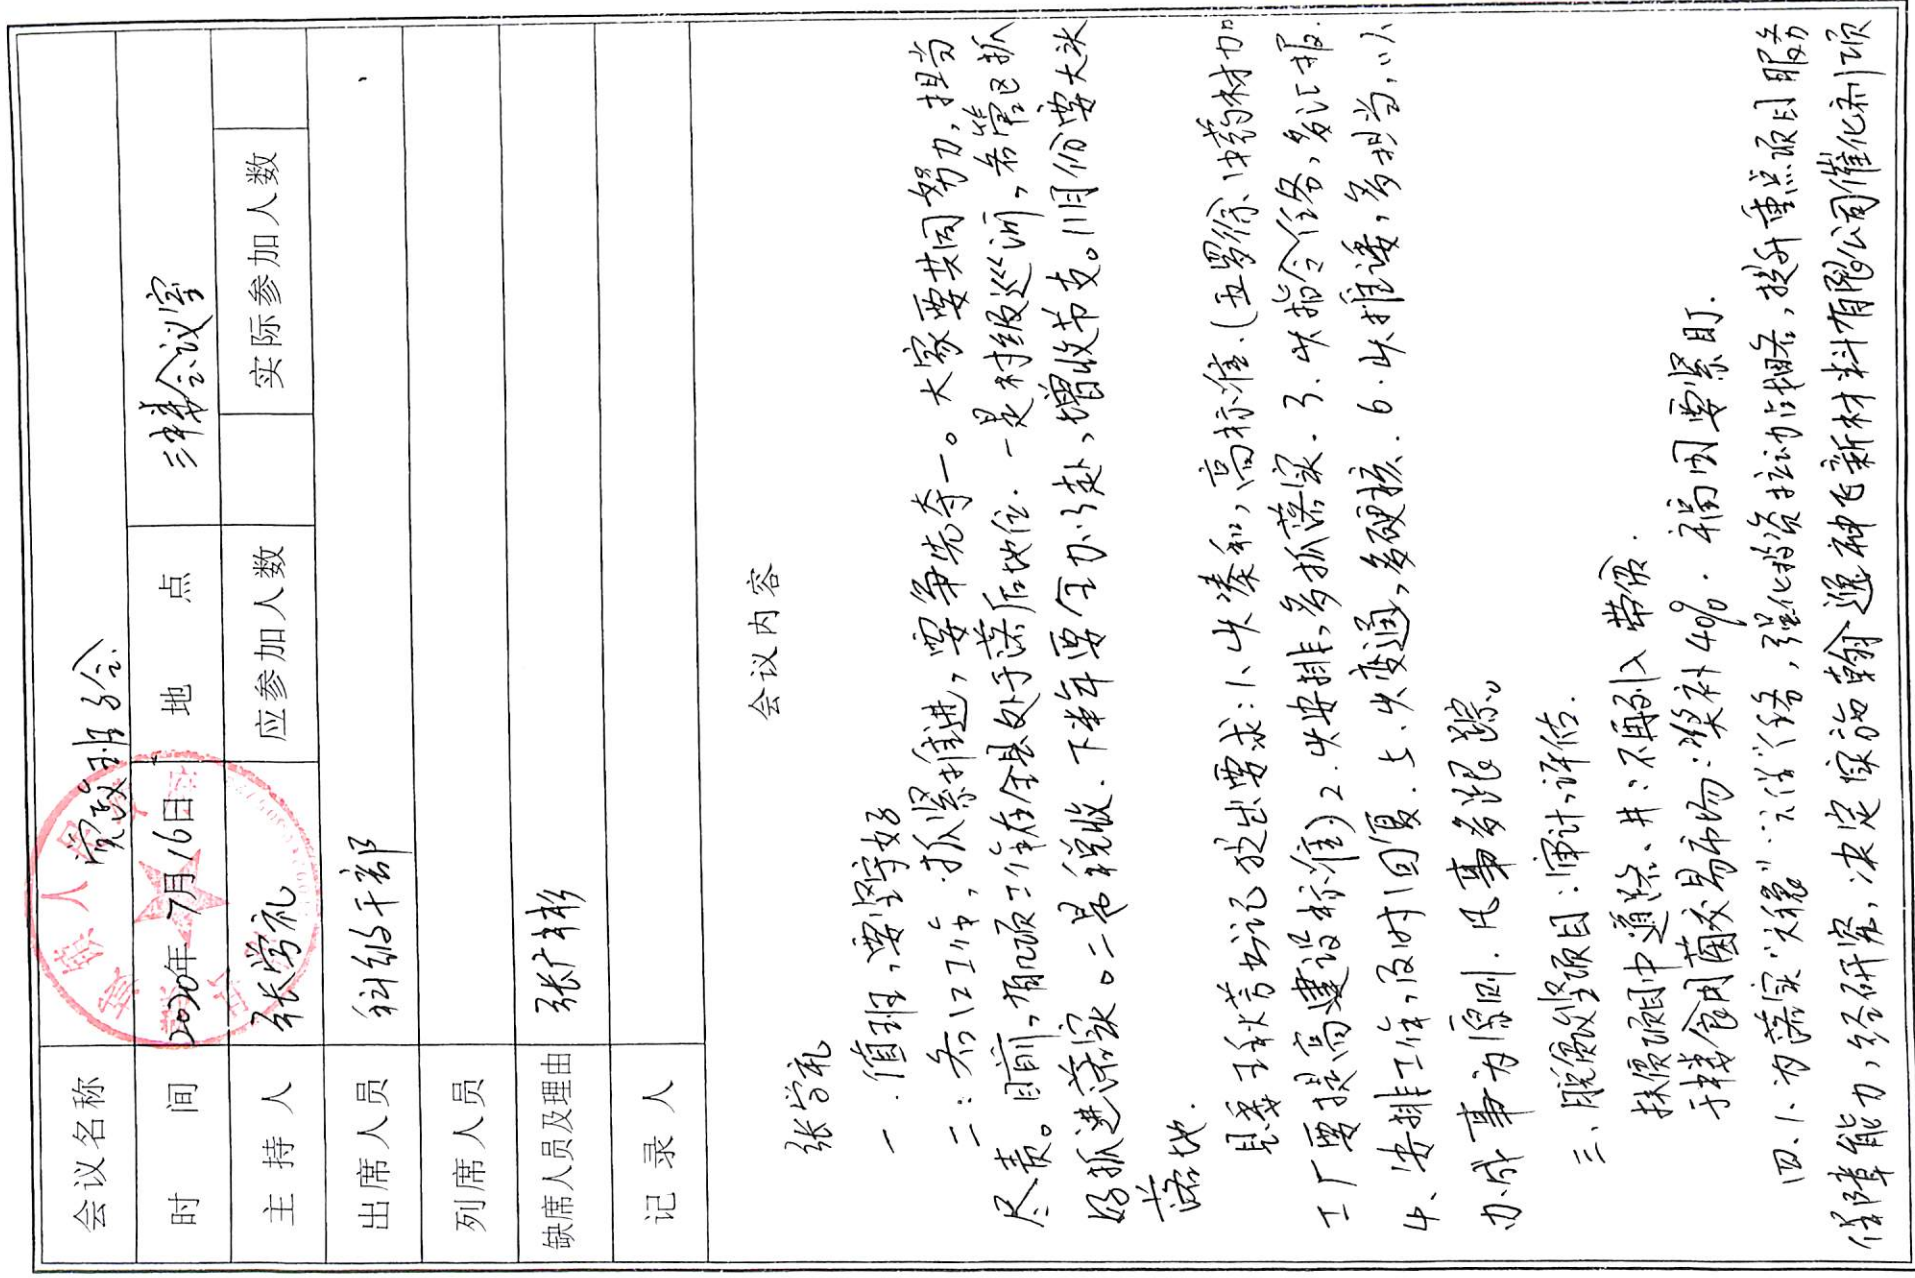 会议名称 党政班子会
时间 2020年7月16日 地点 三楼会议室
主持人 张学礼 应参加人数 实际参加人数
出席人员 科级干部
列席人员
缺席人员及理由 张广彬
记录人
会议内容
张学礼
一.值班,要坚守好
二:各口工作,抓紧推进,要争先夺一。大家要共同努力,担当
尽责。目前,有项工作在全县处于落后地位.一是村级巡河,各管区抓
好抓进落实。二是税收.下半年要全力以赴,增收节支。11月份要大头
落地.
县委王秋芳书记提出要求:1、少凑和,高标准.(五罗徐中药材加
工厂要提高建设标准)2.少安排,多抓落实.3.少指令任务,多汇报.
4、安排工作,及时回复.5.少变通,多硬核.6.少推诿,多担当,以
办成事为原则.凡事多跟踪。
三.脱贫攻坚项目:审计,评估.
扶贫项目中通隧、井:不再引入带贫.
于楼食用菌交易市场:奖补40%.福田要紧盯.
四.1.为落实“六稳”六保任务,强化投资拉动战略,提升重点项目服务
保障能力,经研究,决定实施翰逸神飞新材料有限公司催化剂项